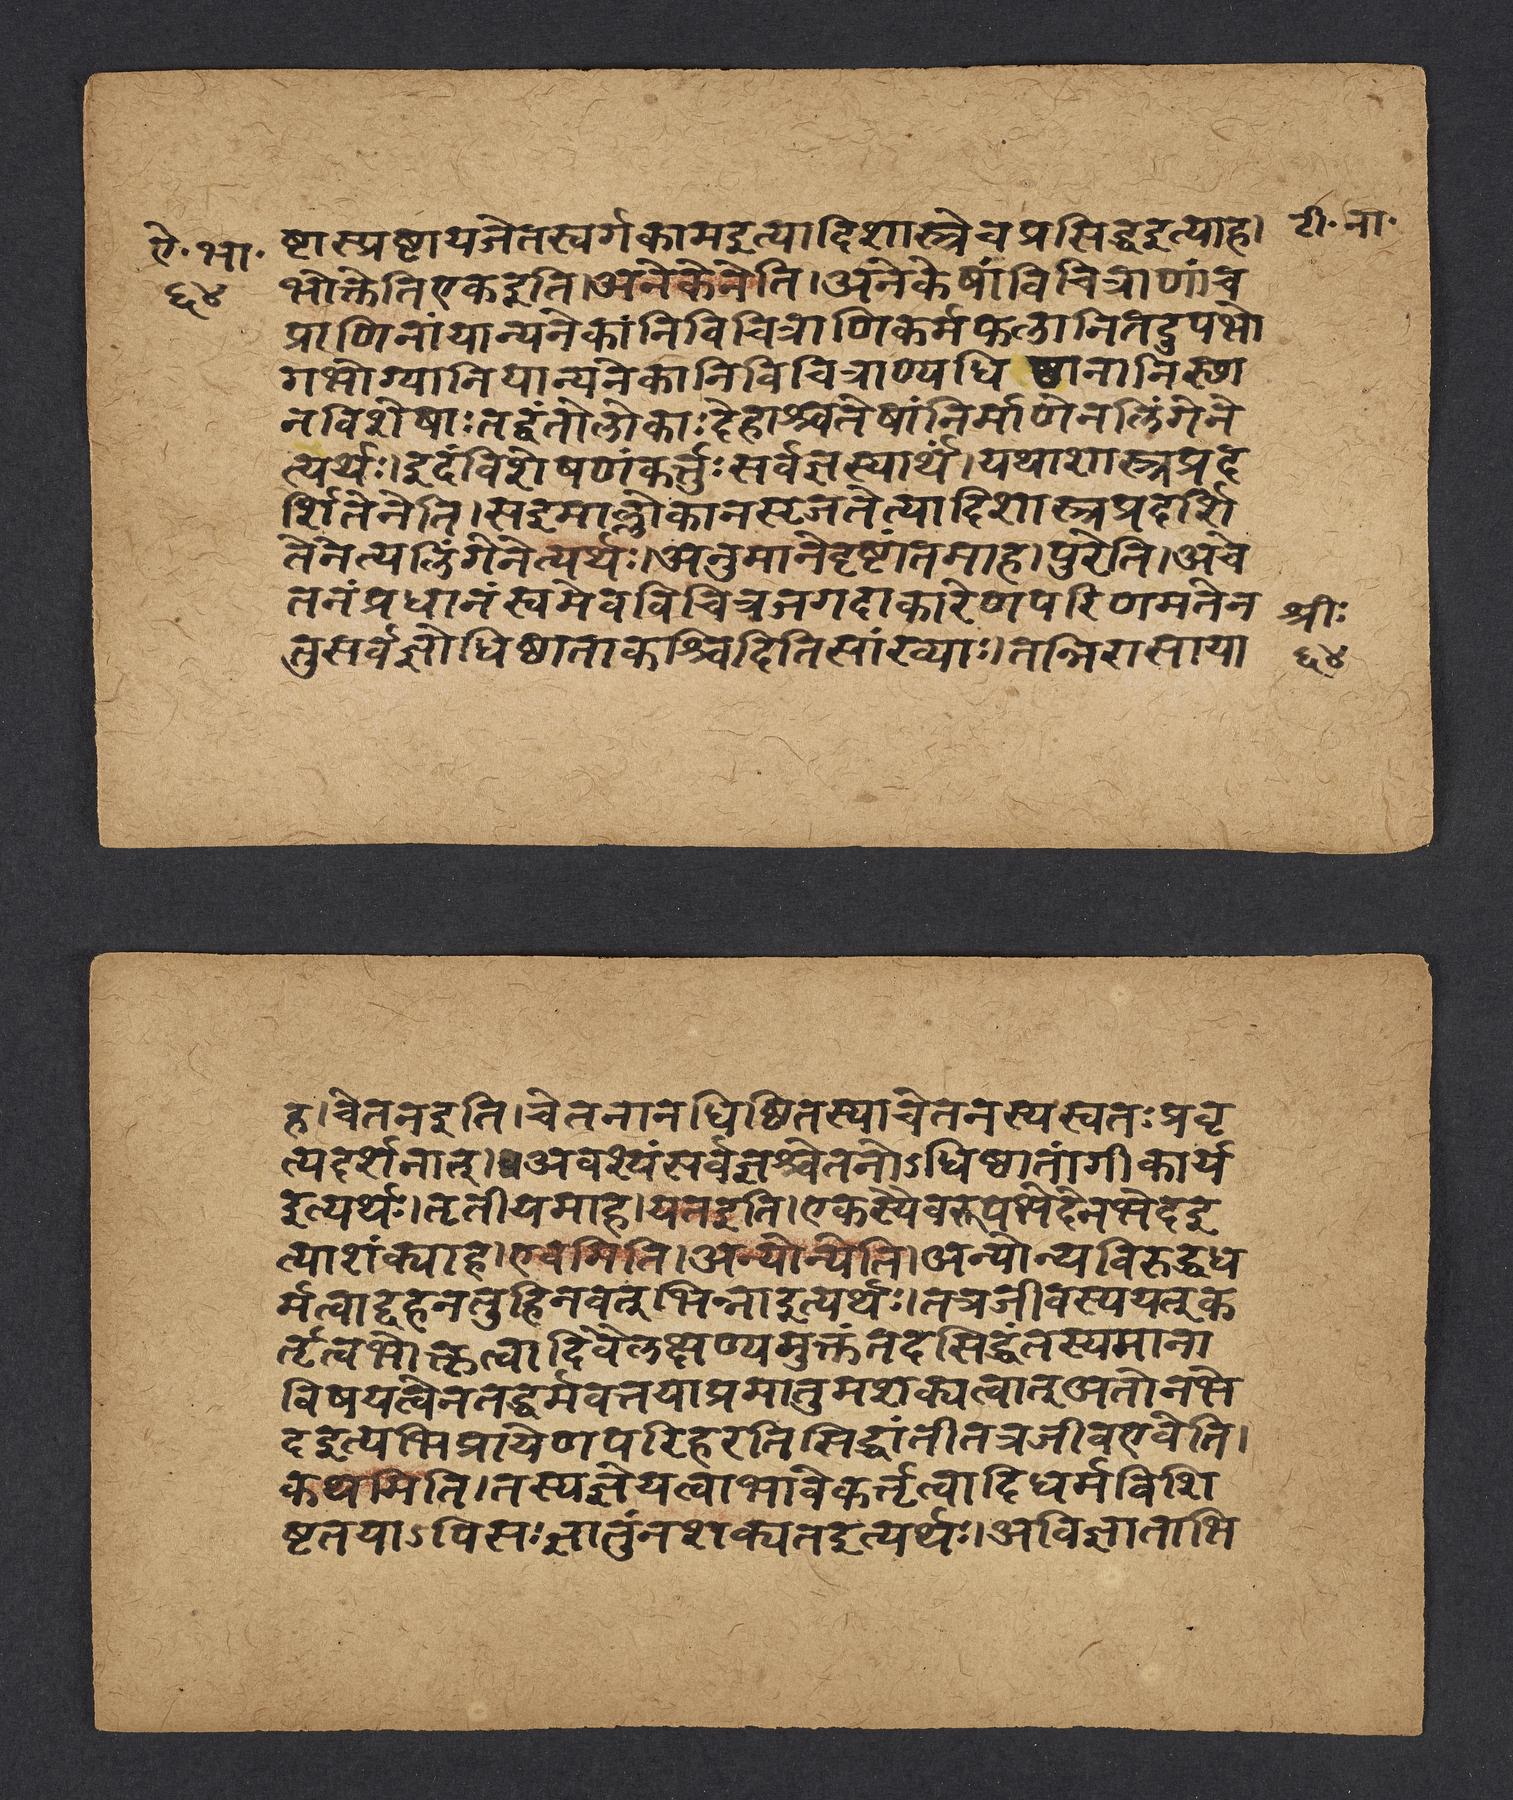 ऐ॰भा॰ ष्टास्प्रष्टायजेतस्वर्गकामइत्यादिशास्त्रेचप्रसिद्धइत्याह। टी॰ना॰
६४ भोक्तेतिएकइति।अनेकेनेति।अनेकेषांविचित्राणांच
प्राणिनांयान्यनेकांनिविचित्राणिकर्मफलानितदुपभो
गभोग्यानियान्यनेकानिविचित्राण्यधिष्ठानानिस्था
नविशेषाःतद्वंतोलोकाःदेहाश्चतेषांनिर्माणेनलिंगेने
त्यर्थः।इदंविशेषणंकर्त्तुःसर्वज्ञस्यार्थं।यथाशास्त्रप्रद
र्शितेनेति।सइमाल्लोकानसृजतेत्यादिशास्त्रप्रदर्शि
तेनेत्यलिंगेनेत्यर्थः।अनुमानेदृष्टांतमाह।पुरेति।अचे
तनंप्रधानंस्वमेवविचित्रजगदाकारेणपरिणमतेन श्रीः
तुसर्वज्ञोधिष्ठाताकश्चिदितिसांख्याः।तन्निरासाया ६४
ह।चेतनइति।चेतनानधिष्ठितस्याचेतनस्यस्वतःप्रवृ
त्यदर्शनात्।अवश्यंसर्वज्ञश्चेतनोऽधिष्ठातांगीकार्य
इत्यर्थः।तृतीयमाह।यतइति।एकस्यैवरूपभेदेनभेदइ
त्याशंक्याह।एवमिति।अन्योन्येति।अन्योन्यविरुद्धध
र्मत्वाद्दहनतुहिनवत्भिन्नाइत्यर्थः।तत्रजीवस्पयत्क
र्तृत्वभोक्तृत्वादिवैलक्षण्यमुक्तंतदसिद्धंतस्यमाना
विषयत्वेनतद्धर्मवत्तयाप्रमातुमशक्यत्वात्अतोनभे
दइत्यभिप्रायेणपरिहरतिसिद्धांतीतत्रजीवएवेति।
कथमिति।तस्यज्ञेयत्वाभावेकर्त्तृत्वादिधर्मविशि
ष्टतयाऽपिसःज्ञातुंनशक्यतइत्यर्थः।अविज्ञाताभि